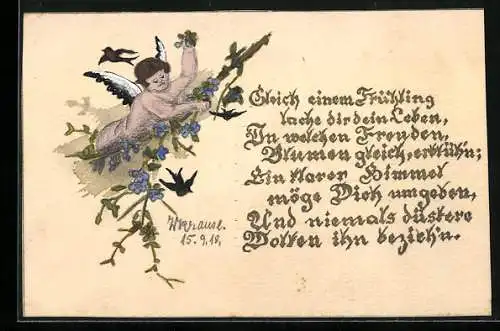 Gleich einem Frühling
lache dir dein Leben,
In welchen Freuden,
Blumen gleich, erblühn;
Ein klarer Himmel
möge Dich umgeben,
Und niemals düstere
Wolken ihn bezieh'n.
W Krause.
15.9.18,